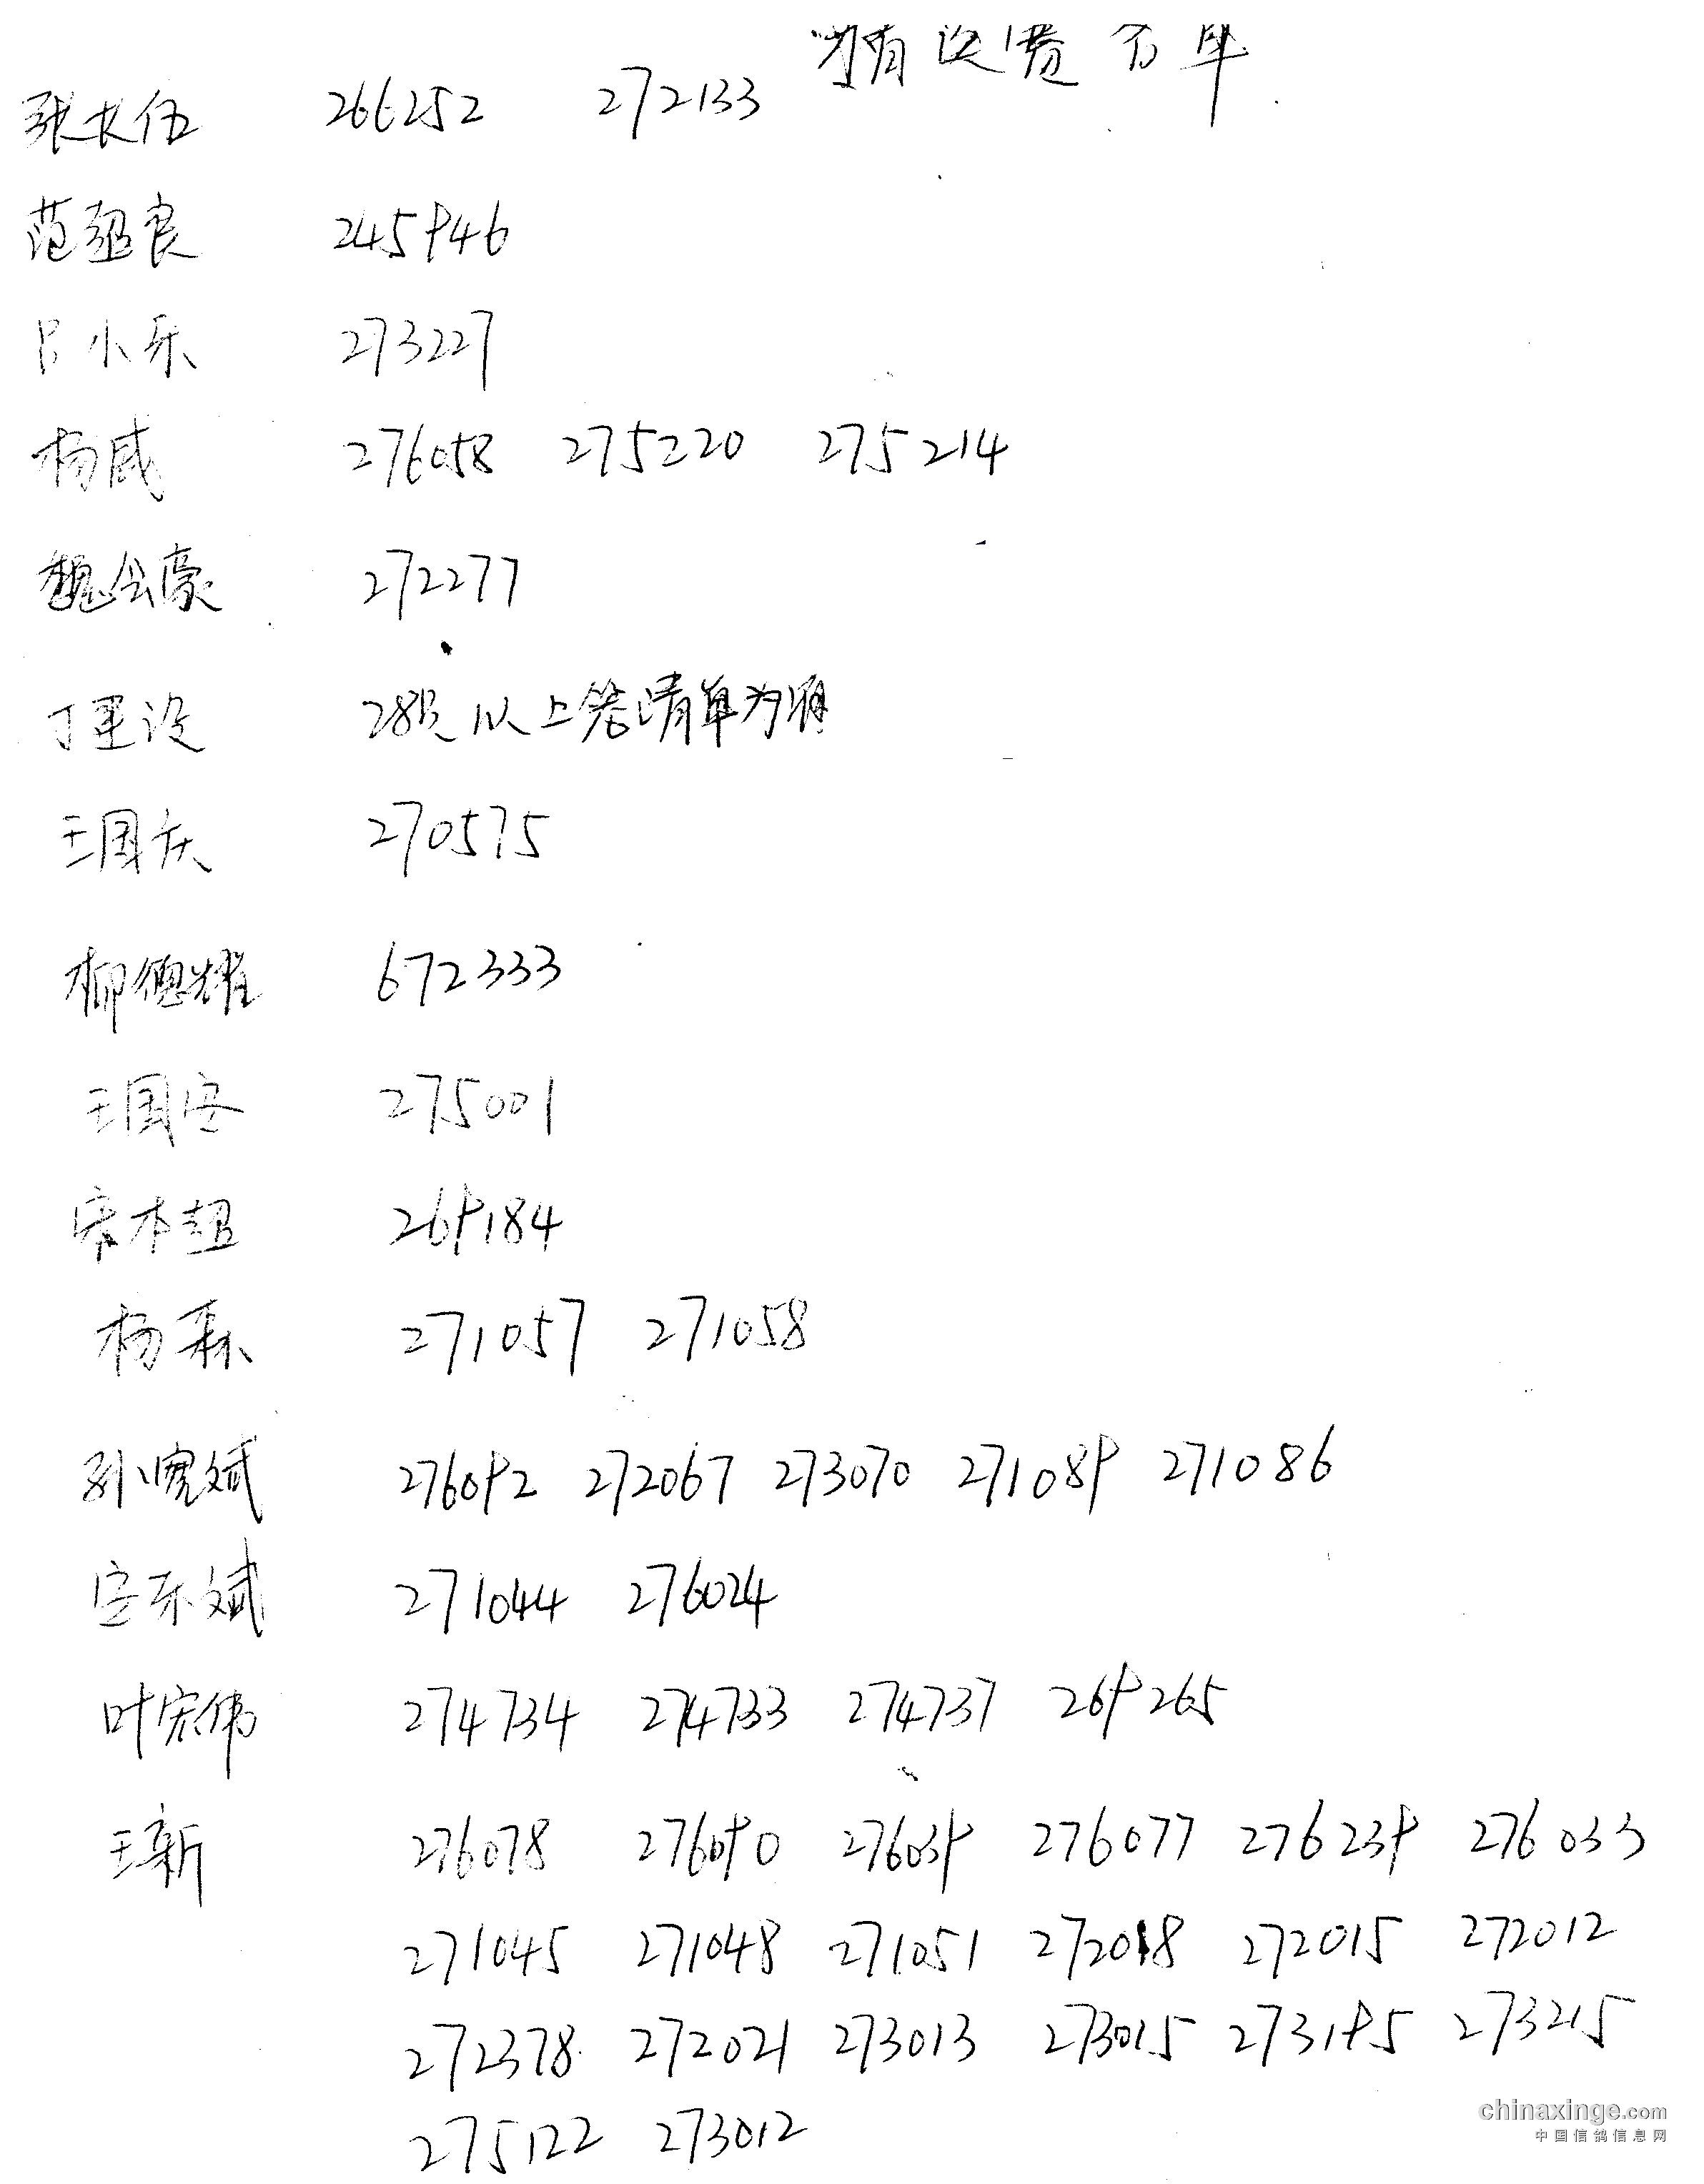 张长伍 266252 272133
范继良 245946
吕小乐 273227
杨威 276058 275220 275214
魏公豪 272277
丁建设 28只以上 清单为准
王国庆 270575
柳德耀 672333
王国安 275001
宋本超 269184
杨森 271057 271058
孙宽斌 276092 272067 273070 271089 271086
安乐斌 271044 276024
叶宏伟 274734 274733 274737 269265
王新 276078 276090 276039 276077 276239 276033
271045 271048 271051 272018 272015 272012
272378 272021 273013 273015 273195 273215
275122 273012
chinaxinge.com
中国信鸽信息网